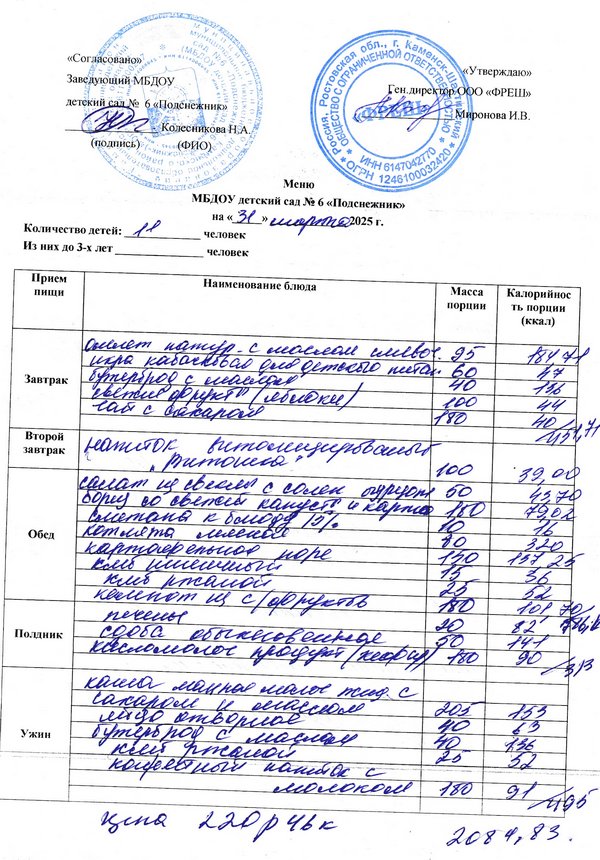 «Согласовано»
Заведующий МБДОУ
детский сад № 6 «Подснежник»
Колесникова Н.А.
(подпись) (ФИО)
«Утверждаю»
Ген.директор ООО «ФРЕШ»
Миронова И.В.
Россия, Ростовская обл., г. Каменск-Шахтинский
ОБЩЕСТВО С ОГРАНИЧЕННОЙ ОТВЕТСТВЕННОСТЬЮ
«ФРЕШ»
ИНН 6147042770
ОГРН 1246100032420
Меню
МБДОУ детский сад № 6 «Подснежник»
на «31» марта 2025 г.
Количество детей: 11 человек
Из них до 3-х лет человек
Прием пищи Наименование блюда Масса порции Калорийность порции (ккал)
Завтрак
омлет натур. с маслом сливоч. 95 184,71
икра кабачковая для детского питан. 60 47
бутерброд с маслом 40 136
свежие фрукты (яблоки) 100 44
чай с сахаром 180 40
451,71
Второй завтрак
напиток витаминизированый
"Витошка" 100 39,00
Обед
салат из свеклы с солен огурцом 60 43,70
борщ со свежей капусты и картоф 180 79,02
сметана к блюду 10% 10 16
котлета мясная 80 220
картофельное пюре 130 137,25
хлеб пшеничный 15 36
хлеб ржаной 25 52
компот из с/фруктов 180 101,70
Полдник
печенье 20 82
сдоба обыкновенная 50 141
кисломолоч продукт (кефир) 180 90
313
Ужин
каша манная молоч жид. с
сахаром и маслом 205 153
яйцо отварное 40 63
бутерброд с маслом 40 136
хлеб ржаной 25 52
кофейный напиток с
молоком 180 91
495
цена 220р 46к
2084,83.